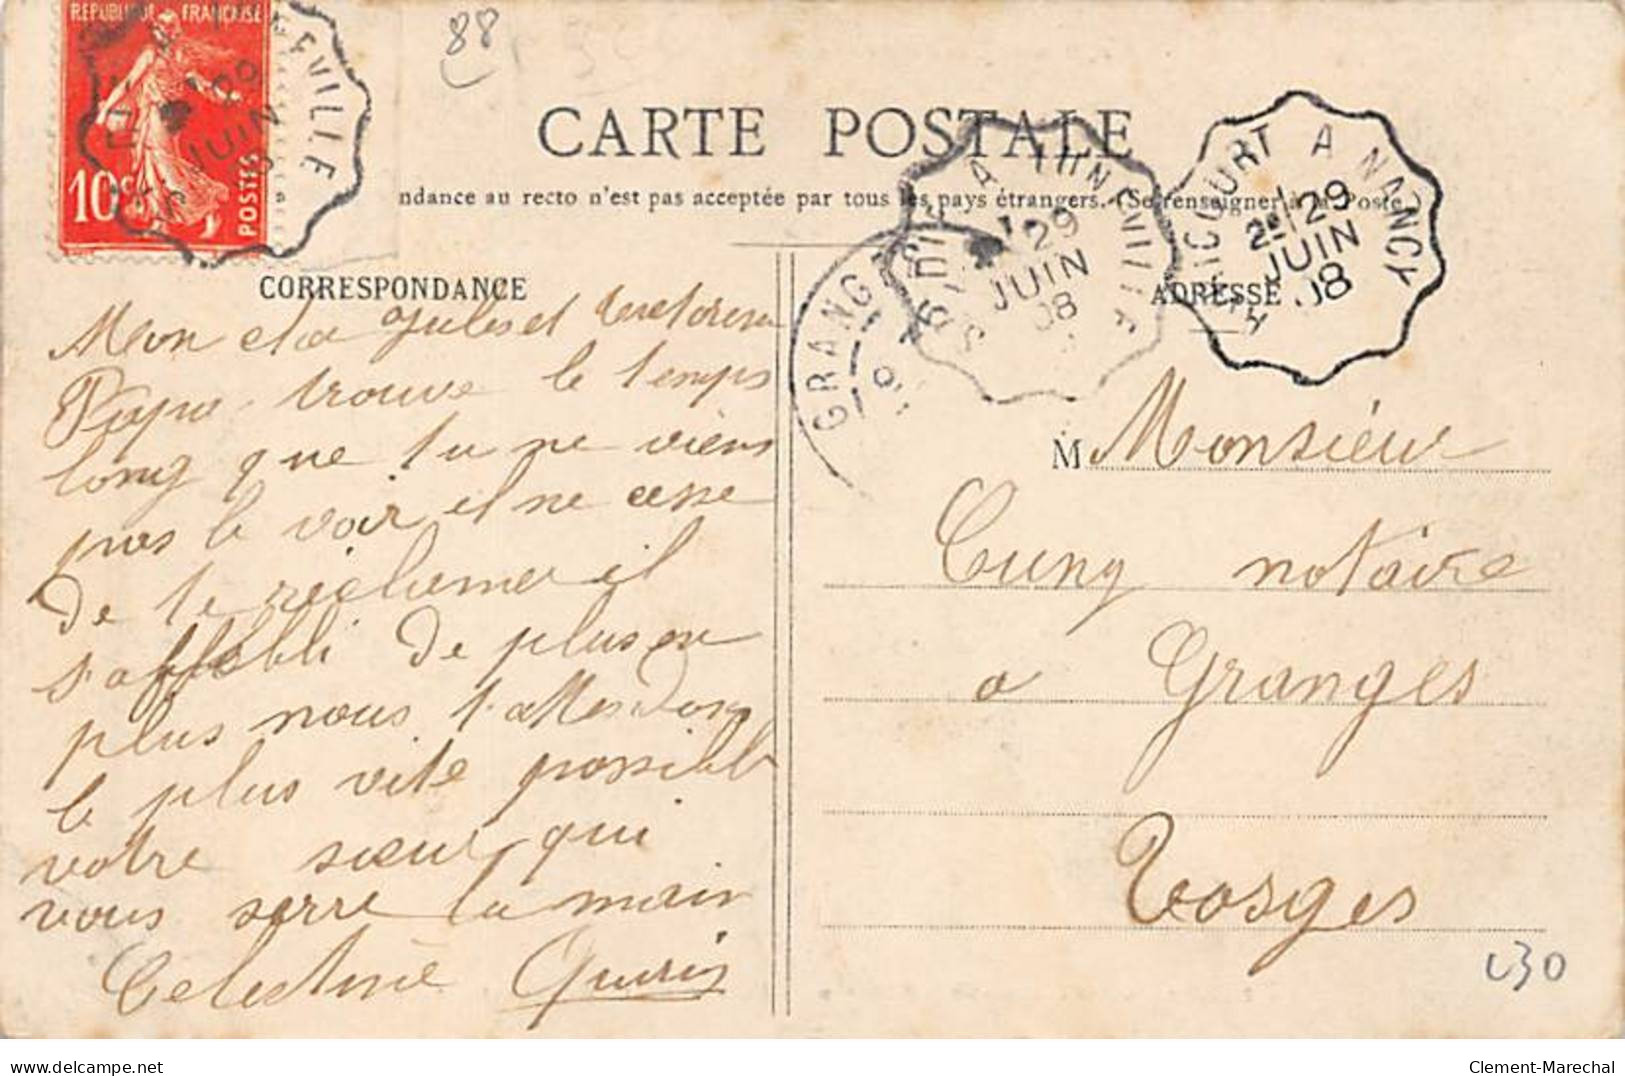 REPUBLIQUE FRANÇAISE
10c POSTES
JUIN
88
CARTE POSTALE
ndance au recto n'est pas acceptée par tous les pays étrangers. (Se renseigner à la Poste)
ST DIÉ A LUNÉVILLE
29
JUIN
08
HÉRICOURT A NANCY
2e 29
JUIN
08
GRANGES
CORRESPONDANCE
ADRESSE
Mon cher Jules et
Papa trouve le temps
long que tu ne viens
pas le voir il ne cesse
de te réclamer il
s'affebli de plus en
plus nous t'attendons
le plus vite possible
votre sœur qui
vous serre la main
Celestine
M Monsieur
Cuny notaire
a Granges
Vosges
L30
Clement-Marechal